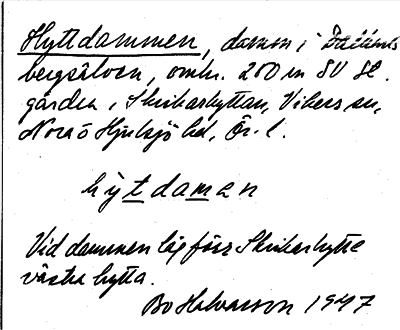 Hyttdammen, damm i
bergsälven, omkr. 200 m SV
gården i Skrikarhyttan, Vikers sn,
Nora o Hjulsjö hd, Ör. l.
hytdaman
Vid dammen låg förr Skrikarhytte
västra hytta.
Bo Halvarson 1947